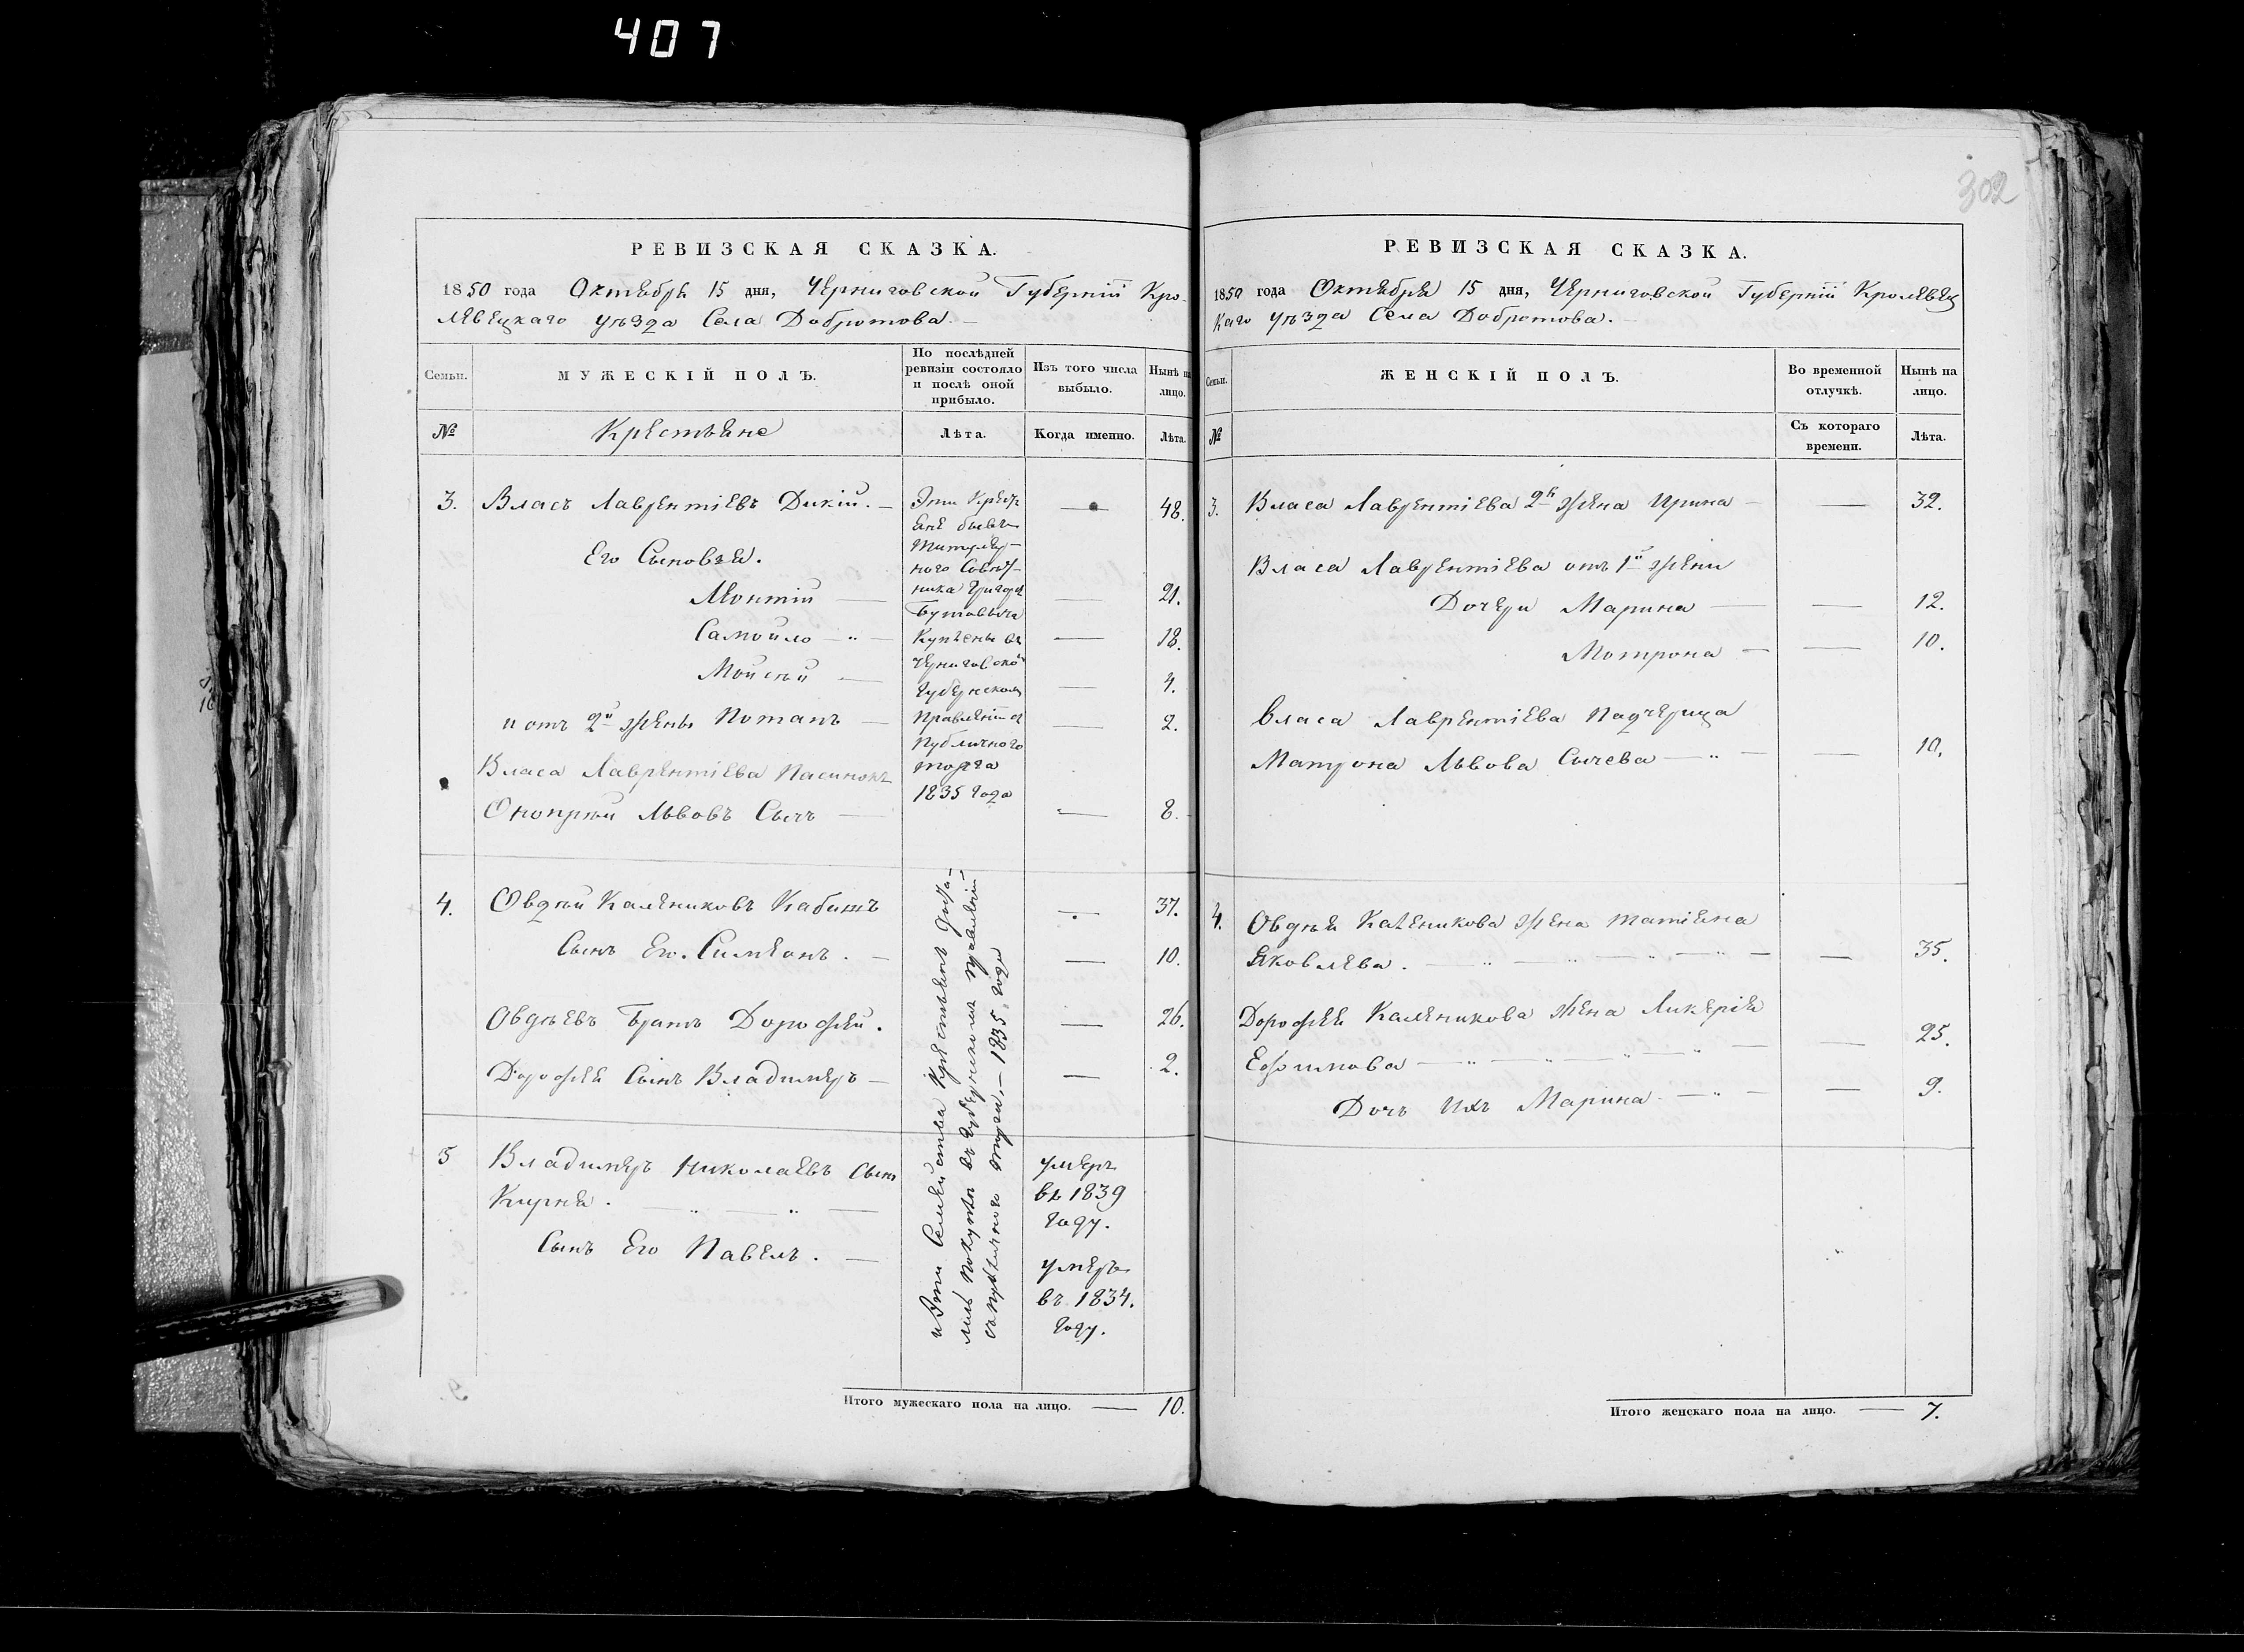 407
РЕВИЗСКАЯ СКАЗКА.
1850 года Октября 15 дня, Черниговской Губерніи Кро-
левецкаго уѣзда Села Добротова.
Семьи.
МУЖЕСКІЙ ПОЛЪ.
По послѣдней
ревизіи состояло
и послѣ оной
прибыло.
Изъ того числа
выбыло.
Нынѣ на
лицо.
№
Крестьяне
Лѣта.
Когда именно.
Лѣта.
3. Власъ Лаврентіевъ Дикій. — — 48.
Его Сыновья.
Леонтій — — 21.
Самойло — — 18.
Мойсѣй — — 4.
и отъ 2й жены Потапъ — — 2.
Власа Лаврентіева Пасинокъ
Онопрѣй Львовъ Сычъ — — 8.
Эти Кресть
яне бывъ
Титуляр-
ного Совѣт-
ника Григорія
Бутовича
Куплены въ
Черниговско
Губернскомъ
Правленіи съ
Публичного
торга
1835 года
4. Овдѣй Калениковъ Кабитъ — 37.
Сынъ Его. Симеонъ. — — 10.
Овдѣевъ Братъ Дорофей. — 26.
Дорофея Сынъ Владимеръ — — 2.
5 Владимеръ Николаевъ Сынъ
Кирня.
умеръ
въ 1839
году.
Сынъ Его Павелъ. —
умеръ
въ 1834.
году.
и Эти Семейства Крестьянъ доста-
лись покупкѣ въ Губернскомъ правленіи
съ публичного торга. — 1835 года
Итого мужескаго пола на лицо. — 10.
302
РЕВИЗСКАЯ СКАЗКА.
1850 года Октября 15 дня, Черниговской Губерніи Кролевец
каго уѣзда Села Добротова.
Семьи.
ЖЕНСКІЙ ПОЛЪ.
Во временной
отлучкѣ.
Нынѣ на
лицо.
№
Съ котораго
времени.
Лѣта.
3. Власа Лаврентіева 2я жена Ирина — — 32.
Власа Лаврентіева отъ 1й жени
Дочери Марина — — 12.
Мотрона — — 10.
Власа Лаврентіева Падчерица
Матрона Львова Сычева — — 10.
4. Овдѣя Каленикова жена Татіяна
Яковлева. — — 35.
Дорофея Каленикова жена Ликерія
Ефимова — — 25.
Дочь Ихъ Марина. — — 9.
Итого женскаго пола на лицо. — 7.